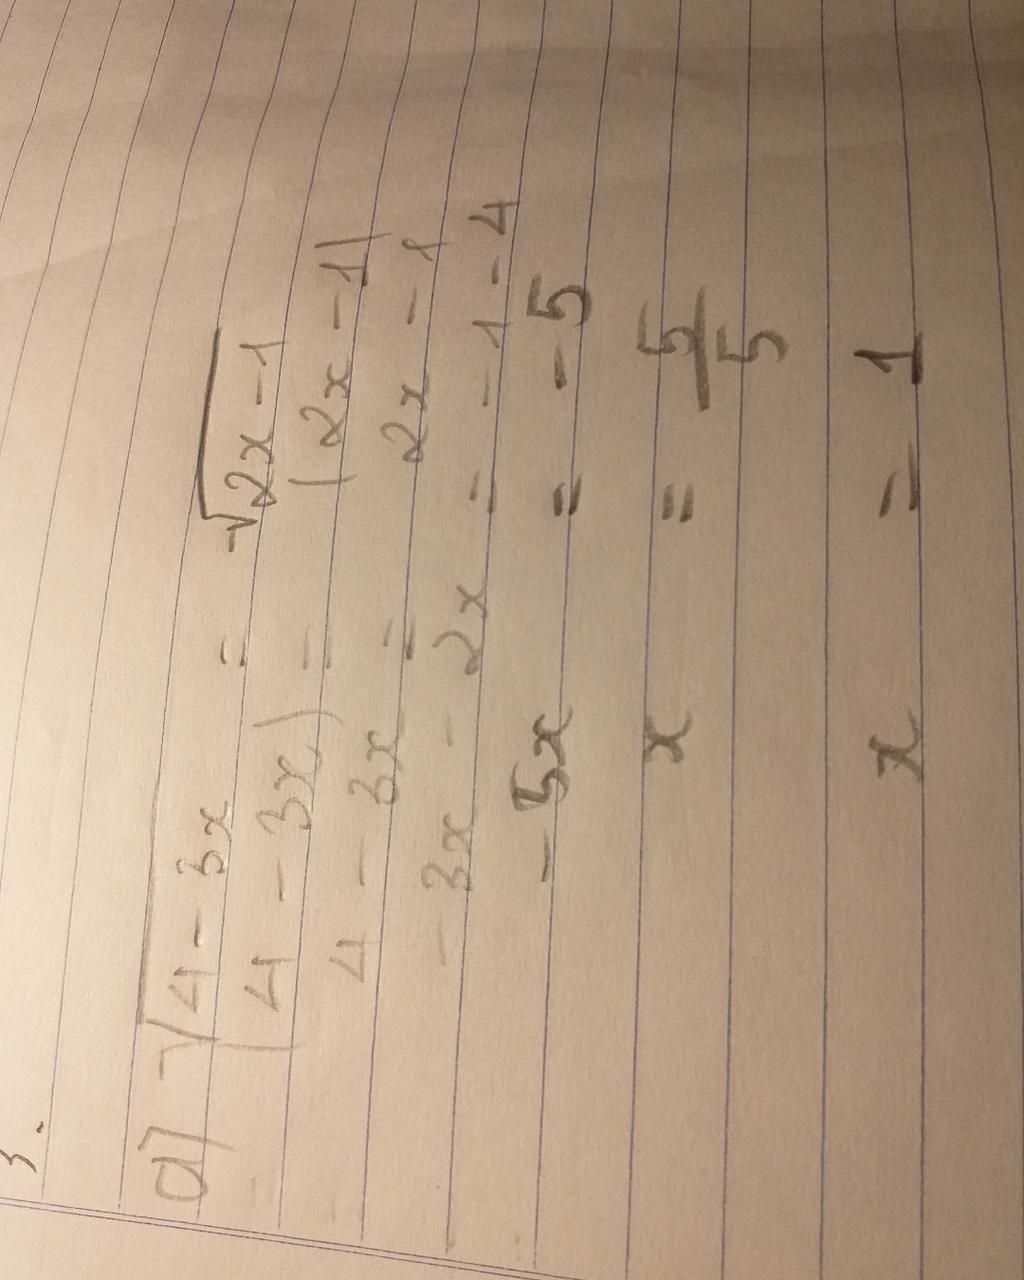 3.
a) √4 - 3x = √2x - 1
(4 - 3x) = (2x - 1)
4 - 3x = 2x - 1
- 3x - 2x = - 1 - 4
- 5x = - 5
x = 5/5
x = 1